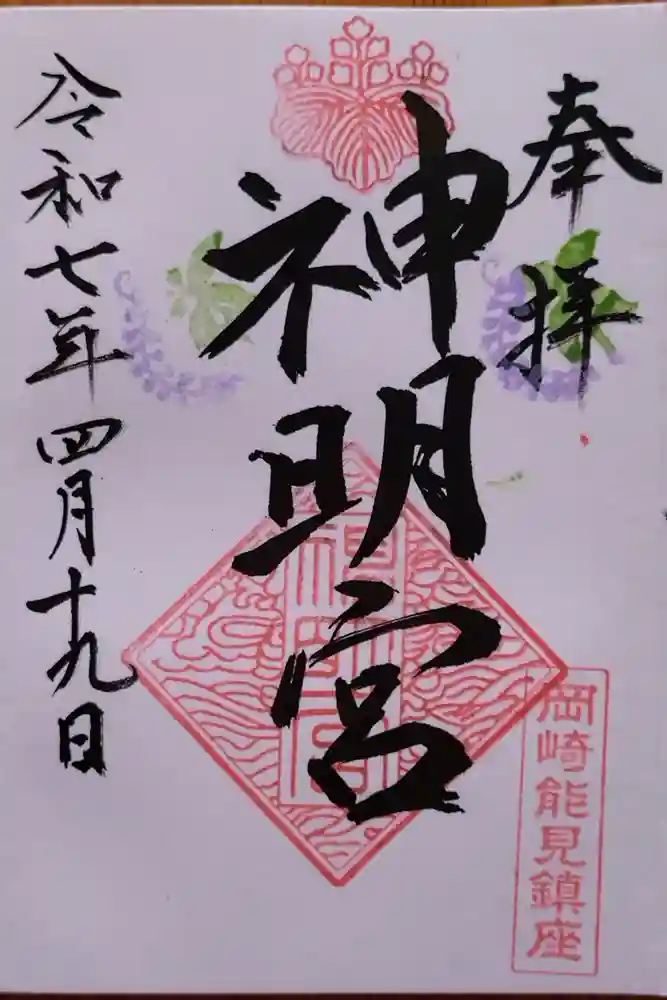 奉拝
神明宮
神明宮
岡崎能見鎮座
令和七年四月十九日